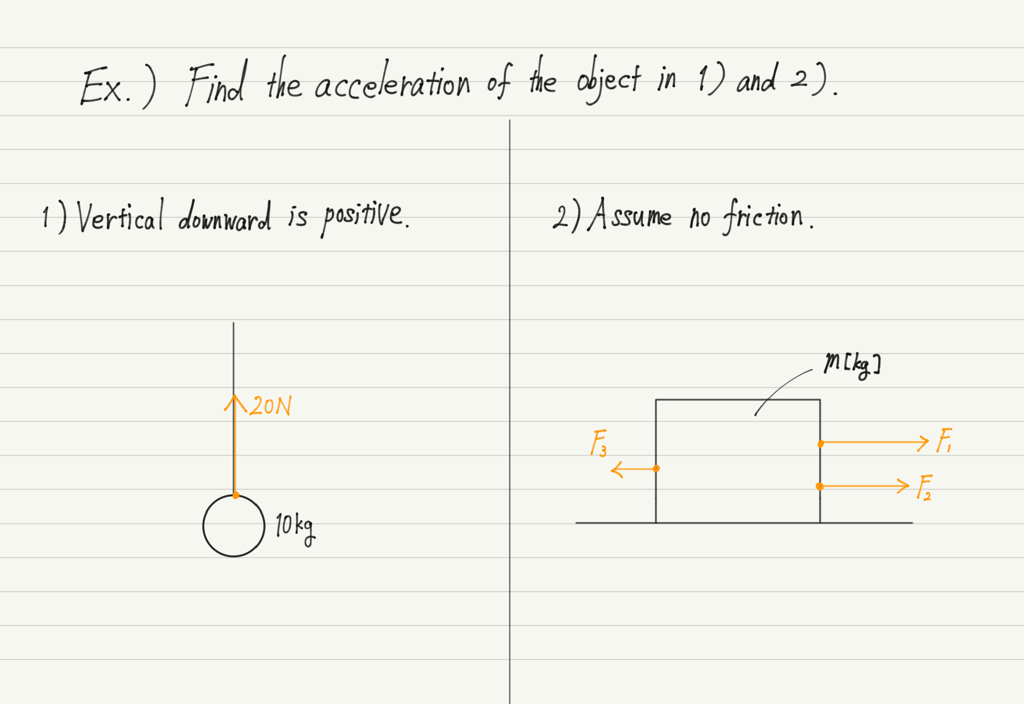 Ex.) Find the acceleration of the object in 1) and 2).
1) Vertical downward is positive.
20N
10kg
2) Assume no friction.
m[kg]
F₃
F₁
F₂